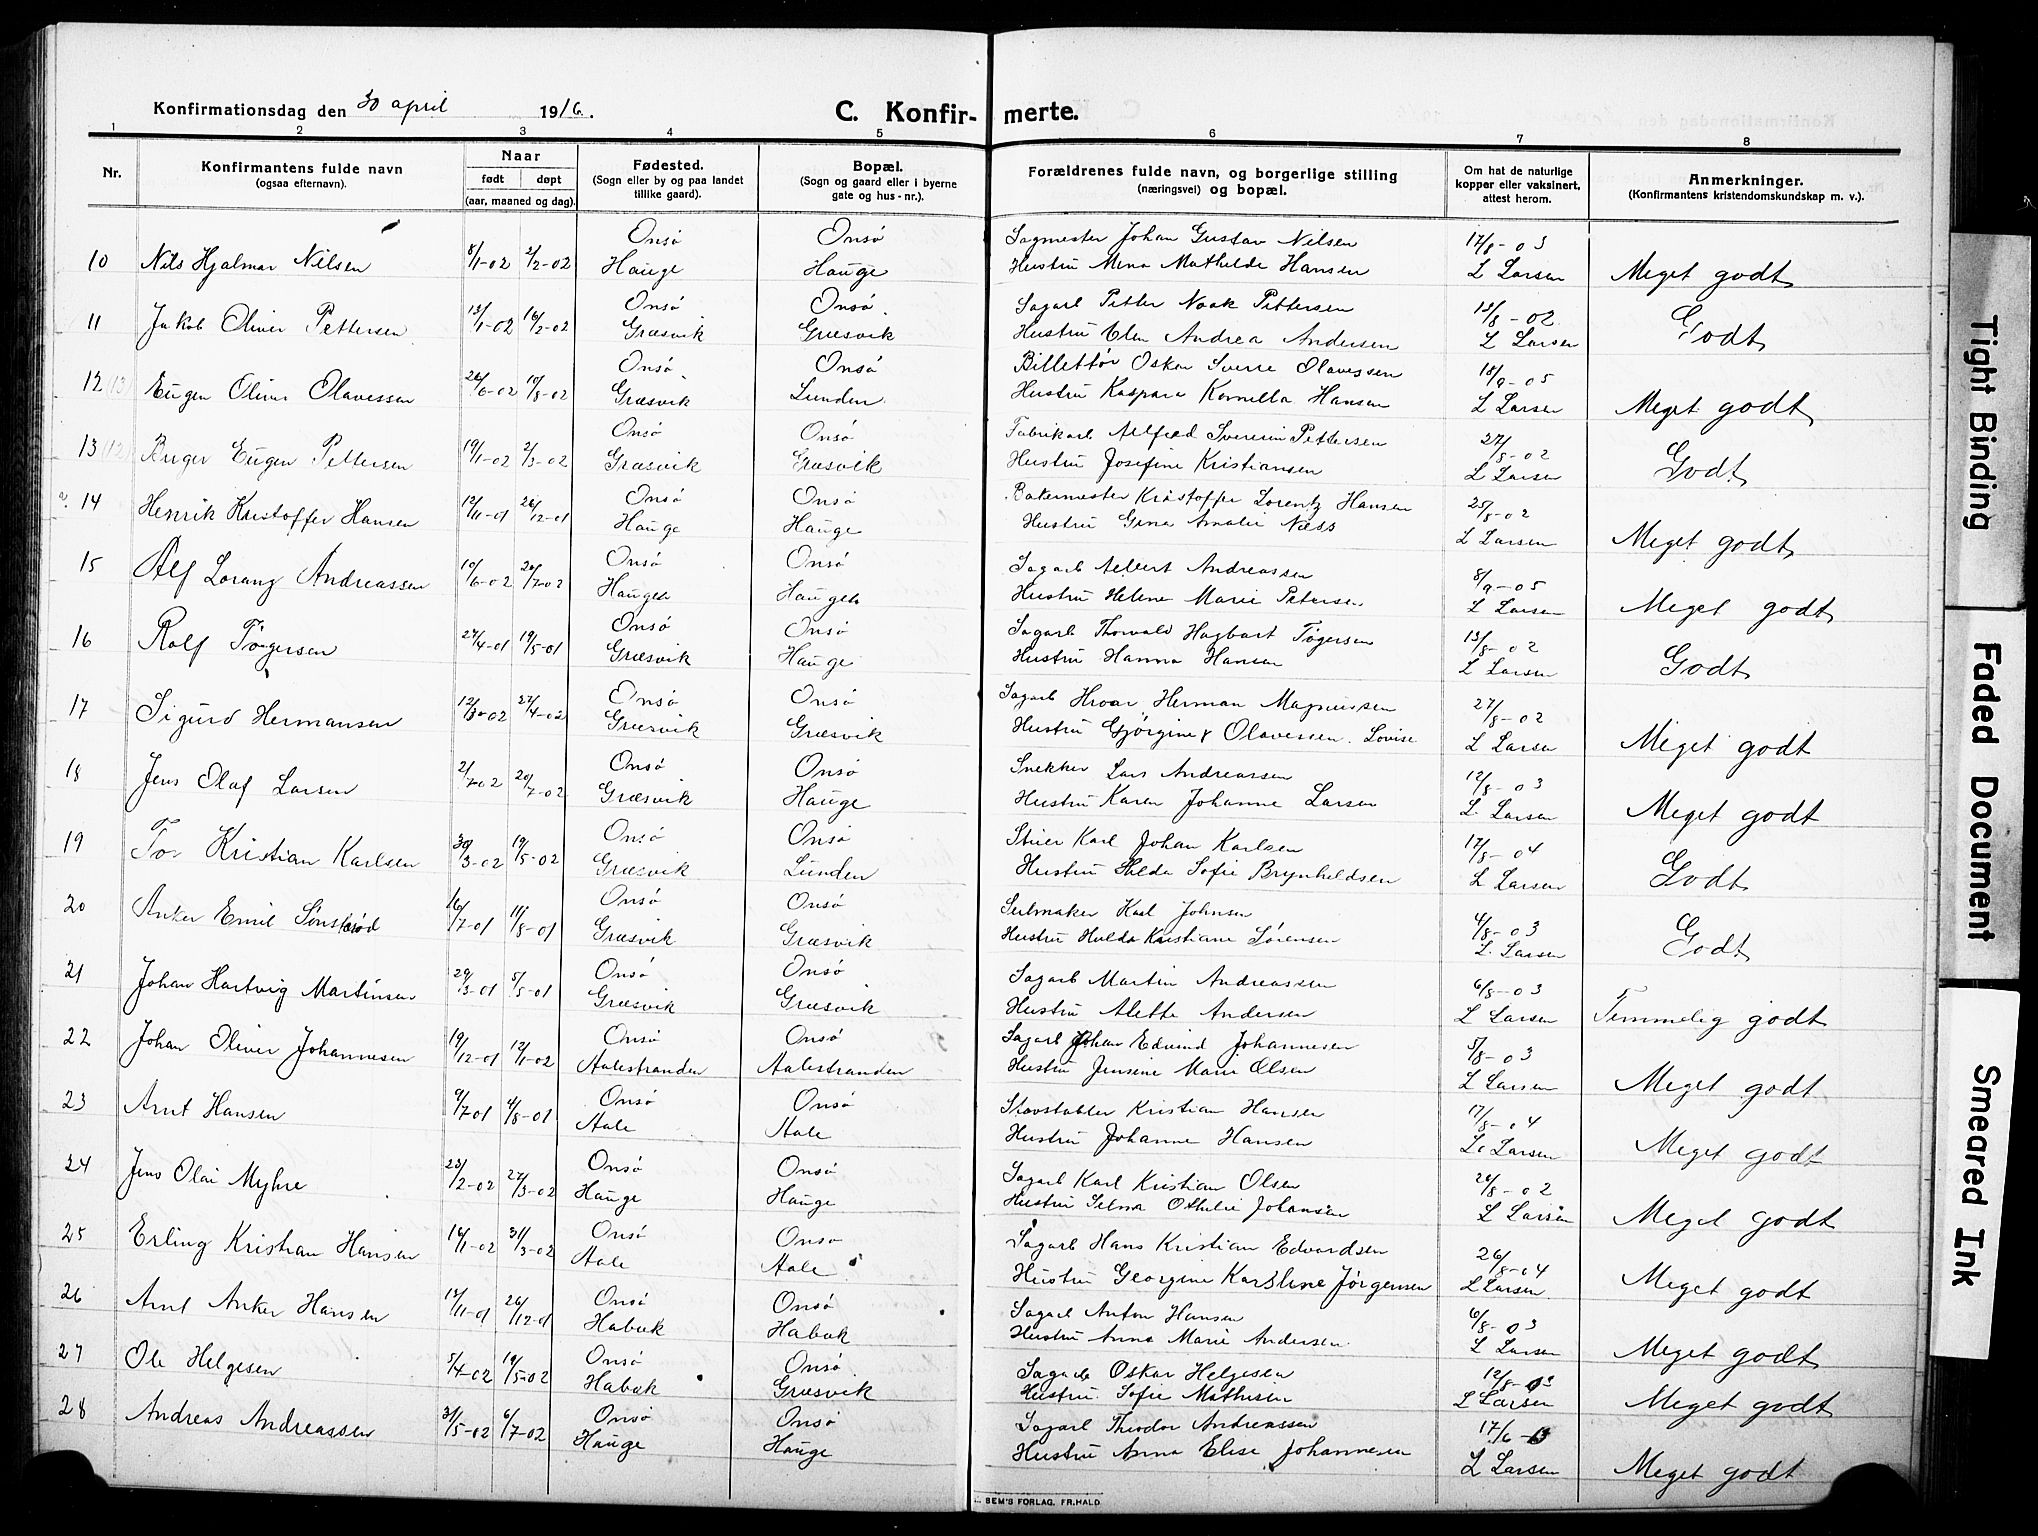 Konfirmationsdag den 30 april 1916. C. Konfir- merte.
1 2 3 4 5 6 7 8
Nr. Konfirmantens fulde navn (ogsaa efternavn). Naar født døpt (aar, maaned og dag). Fødested. (Sogn eller by og paa landet tillike gaard). Bopæl. (Sogn og gaard eller i byerne gate og hus-nr.). Forældrenes fulde navn, og borgerlige stilling (næringsvei) og bopæl. Om hat de naturlige kopper eller vaksinert, attest herom. Anmerkninger. (Konfirmantens kristendomskundskap m. v.).
Onsö Onsö Sagmester Johan Gustav Nilsen 17/8-03
10 Nils Hjalmar Nilsen 8/1-02 2/2-02 Hauge Hauge Hustru Mina Mathilde Hansen L Larsen Meget godt
Onsö Onsö Sagarb Petter Noak Pettersen 13/8-02
11 Jakob Oliver Pettersen 13/1-02 16/2-02 Græsvik Græsvik Hustru Elen Andrea Andersen L Larsen Godt
Onsö Onsö Billettör Oskar Sverre Olavessen 18/9-05
12 (13) Eugen Oliver Olavessen 26/6-02 10/8-02 Græsvik Lunden Hustru Kaspara Kornella Hansen L Larsen Meget godt
Onsö Onsö Fabrikarb Alfred Sverin Pettersen 27/8-02
13 (12) Birger Eugen Pettersen 19/1-02 2/3-02 Græsvik Græsvik Hustru Josefine Kristiansen L Larsen Godt
Onsö Onsö Bakermester Kristoffer Lorentz Hansen 25/8-02
14 Henrik Kristoffer Hansen 12/11-01 26/12-01 Hauge Hauge Hustru Gina Amalie Næss L Larsen Meget godt
Onsö Onsö Sagarb Albert Andreassen 8/9-05
15 Alf Lorang Andreassen 10/6-02 20/7-02 Haugen Haugen Hustru Helene Marie Petersen L Larsen Meget godt
Onsö Onsö Sagarb Thorvald Hagbart Tögersen 13/8-02
16 Rolf Tögersen 27/4-01 19/5-01 Græsvik Hauge Hustru Hanna Hansen L Larsen Godt
Onsö Onsö Sagarb Hroar Herman Magnussen 27/8-02
17 Sigurd Hermansen 12/3-02 27/4-02 Græsvik Græsvik Hustru Gjörgine Olavessen. Lovise L Larsen Meget godt
Onsö Onsö Snekker Lars Andreassen 12/8-03
18 Jens Olaf Larsen 2/7-02 20/7-02 Græsvik Hauge Hustru Karen Johanne Larsen L. Larsen Meget godt
Onsö Onsö Stuer Karl Johan Karlsen 17/8-04
19 Tor Kristian Karlsen 30/3-02 19/5-02 Græsvik Lunden Hustru Hilda Sofie Brynheldsen L Larsen Godt
Onsö Onsö Seilmaker Karl Johnsen 4/8-03
20 Anker Emil Sönsteröd 16/7-01 11/8-01 Græsvik Græsvik Hustru Hulda Kristiane Sörensen L. Larsen Godt
Onsö Onsö Sagarb Martin Andreassen 6/8-03
21 Johan Hartvig Martinsen 29/3-01 5/5-01 Græsvik Græsvik Hustru Alette Andersen L Larsen Temmelig godt
Onsö Onsö Sagarb Johan Edvind Johannesen 5/8-03
22 Johan Oliver Johannesen 19/12-01 12/1-02 Aalestranden Aalestranden Hustru Jensine Marie Olsen L Larsen Meget godt
Onsö Onsö Stavstabler Kristian Hansen 17/8-04
23 Arnt Hansen 9/7-01 4/8-01 Aale Aale Hustru Johanne Hansen L. Larsen Meget godt
Onsö Onsö Sagarb Karl Kristian Olsen 26/8-02
24 Jens Olai Myhre 23/2-02 27/3-02 Hauge Hauge Hustru Selma Othilie Johansen L Larsen Meget godt
Onsö Onsö Sagarb Hans Kristian Edvardsen 26/8-04
25 Erling Kristian Hansen 14/1-02 31/3-02 Aale Aale Hustru Georgine Karoline Jörgensen L Larsen Meget godt
Onsö Onsö Sagarb Anton Hansen 6/8-03
26 Arnt Anker Hansen 13/11-01 26/12-01 Habæk Habæk Hustru Anna Marie Andersen L Larsen Meget godt
Onsö Onsö Sagarb Oskar Helgesen 12/8-03
27 Ole Helgesen 5/4-02 19/5-02 Habæk Græsvik Hustru Sofie Mathisen L Larsen Meget godt
Onsö Onsö Sagarb Theodor Andreassen 17/6-
28 Andreas Andreassen 31/5-02 6/7-02 Hauge Hauge Hustru Anna Elise Johannesen L Larsen Meget godt
SEM'S FORLAG, FR.HALD
Tight Binding
Faded Document
Smeared Ink